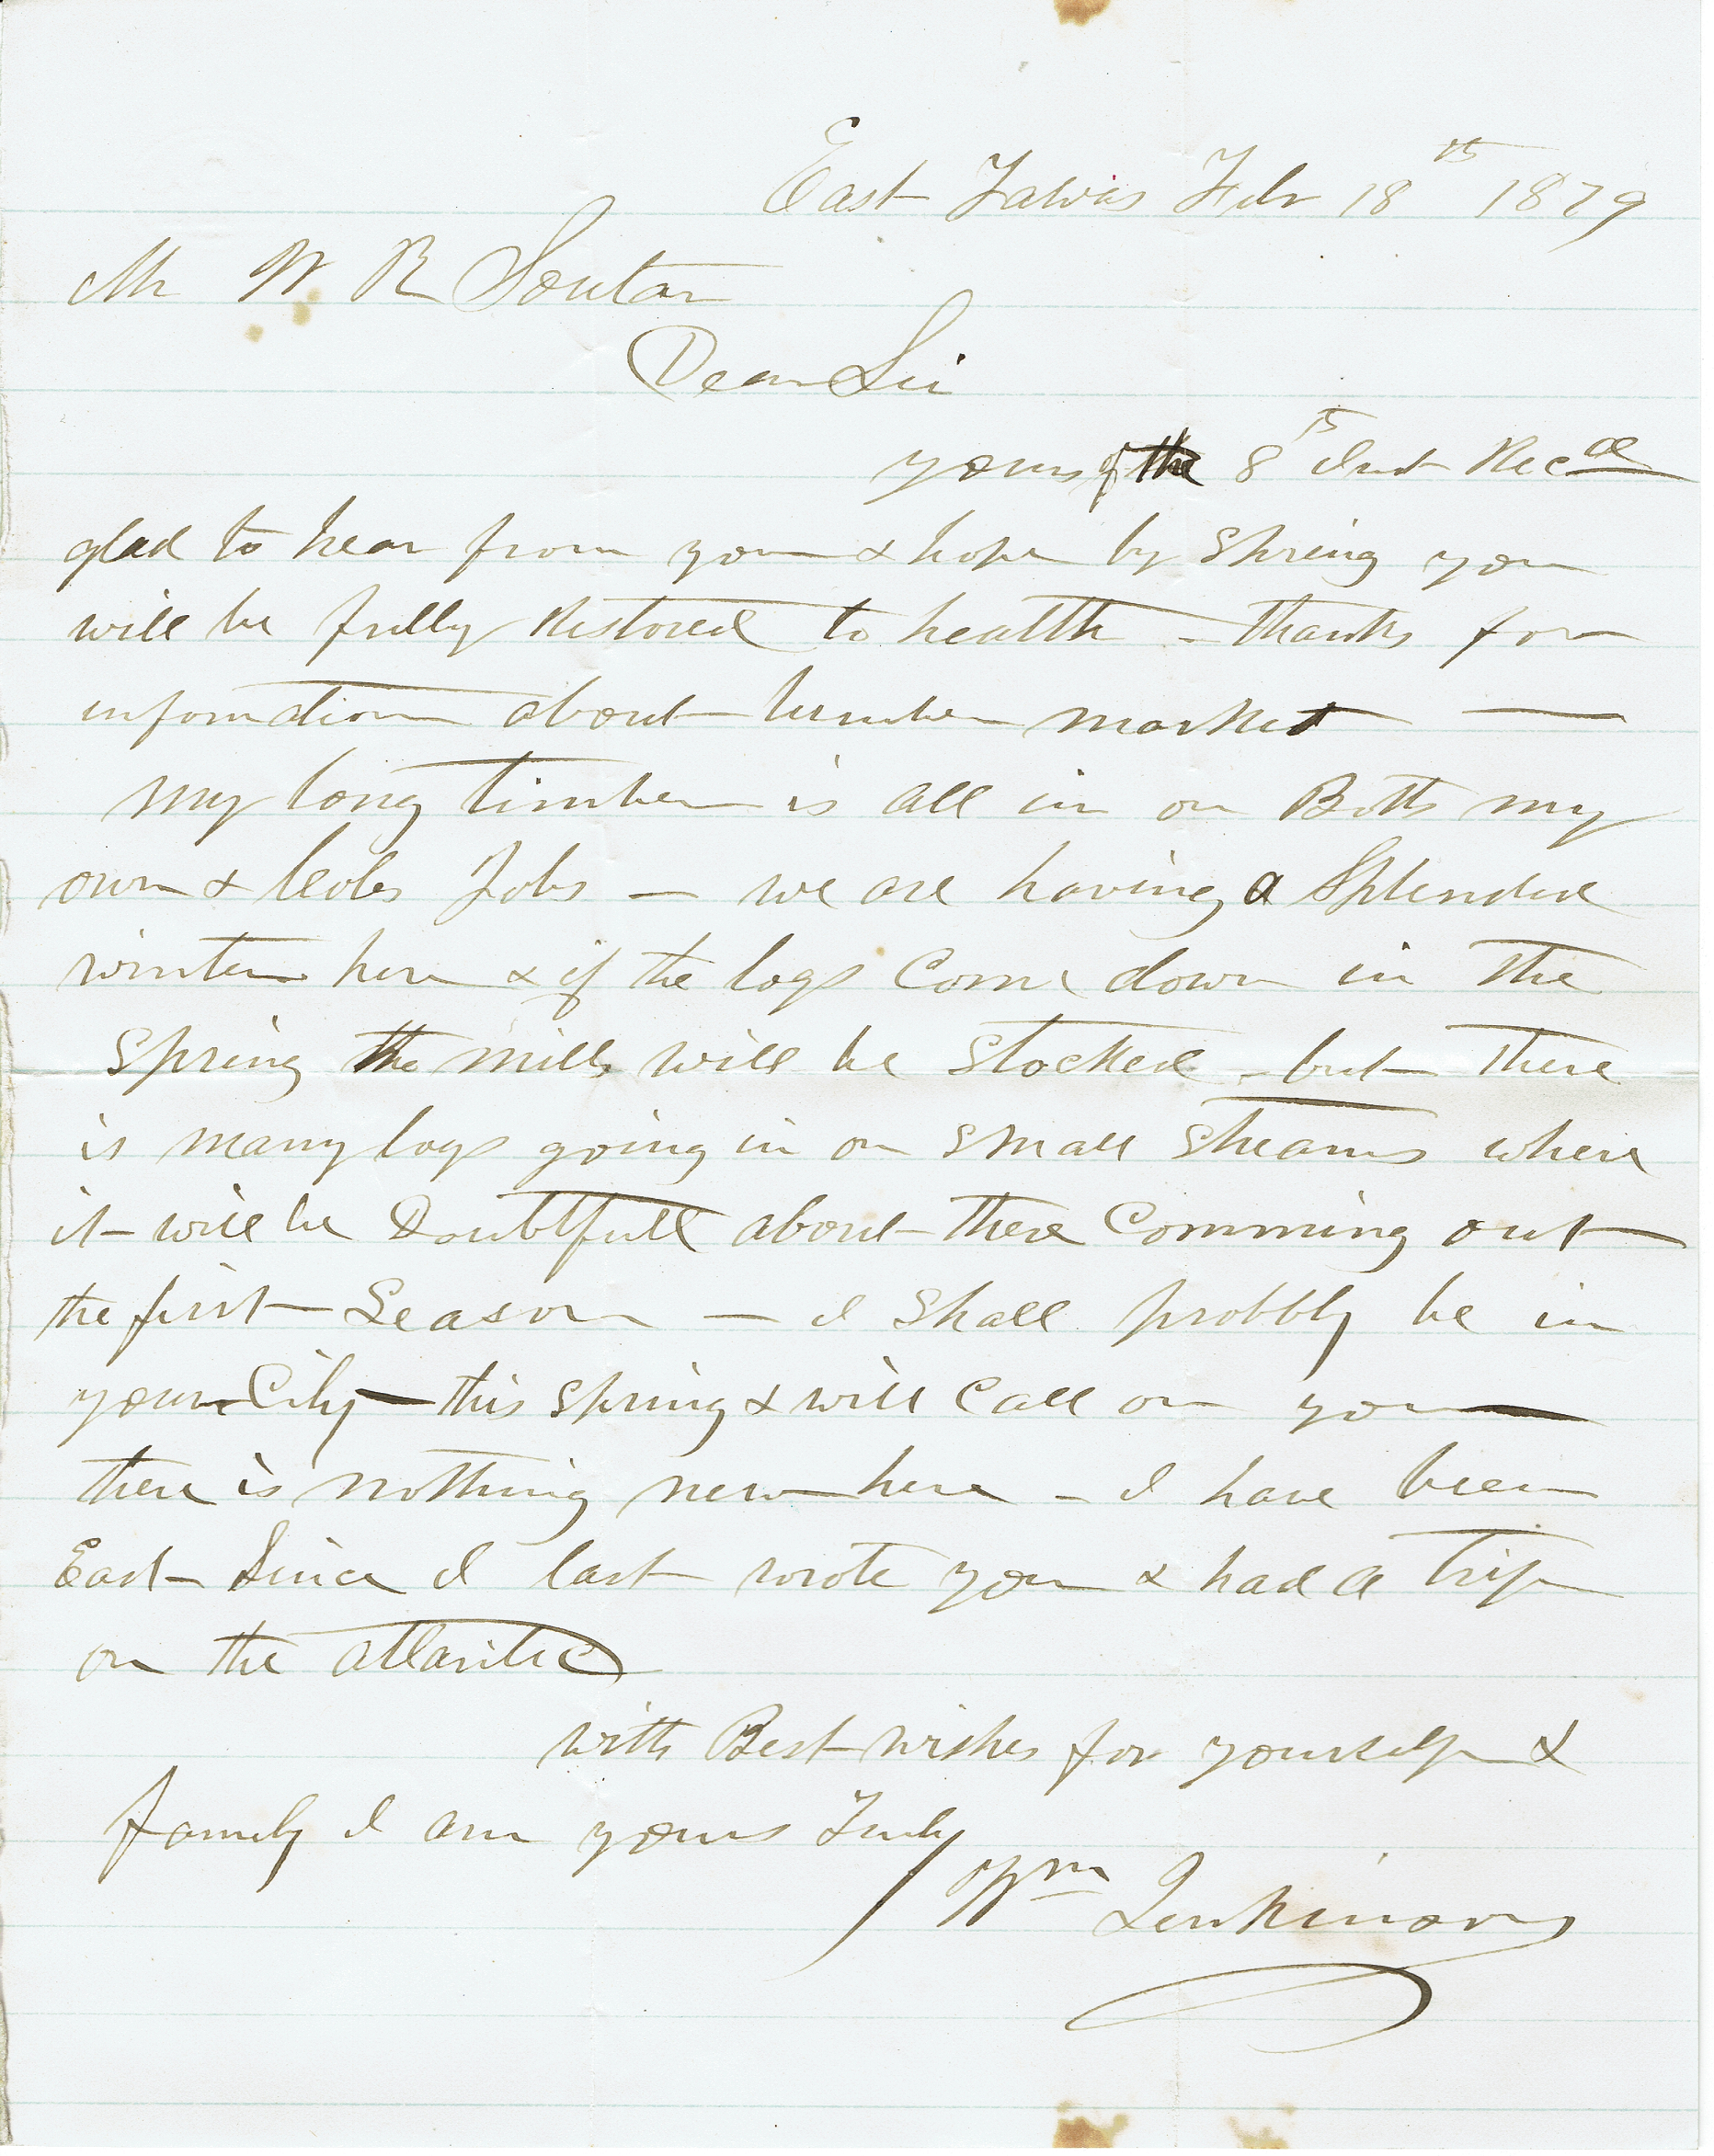 East Tawas Feb 18th 1879
Mr W R Soutar
Dear Sir
yours of the 8th Inst Recd
glad to hear from you & hope by Spring you
will be fully Restored to health - thanks for
information about lumber market —
my long timber is all in on Both my
own & Jobs — we are having a Splended
winter here & if the logs Come down in the
Spring the mills will be Stocked - but there
is many logs going in on Small Streams where
it will be Doubtfull about there Comming out
the first Season — I Shall probbly be in
your City — this Spring & will Call on you —
there is nothing new here - I have been
East Since I last wrote you & had a trip
on the atlantic
with Best wishes for yourself &
family I am yours Truly
Wm Jenkinson